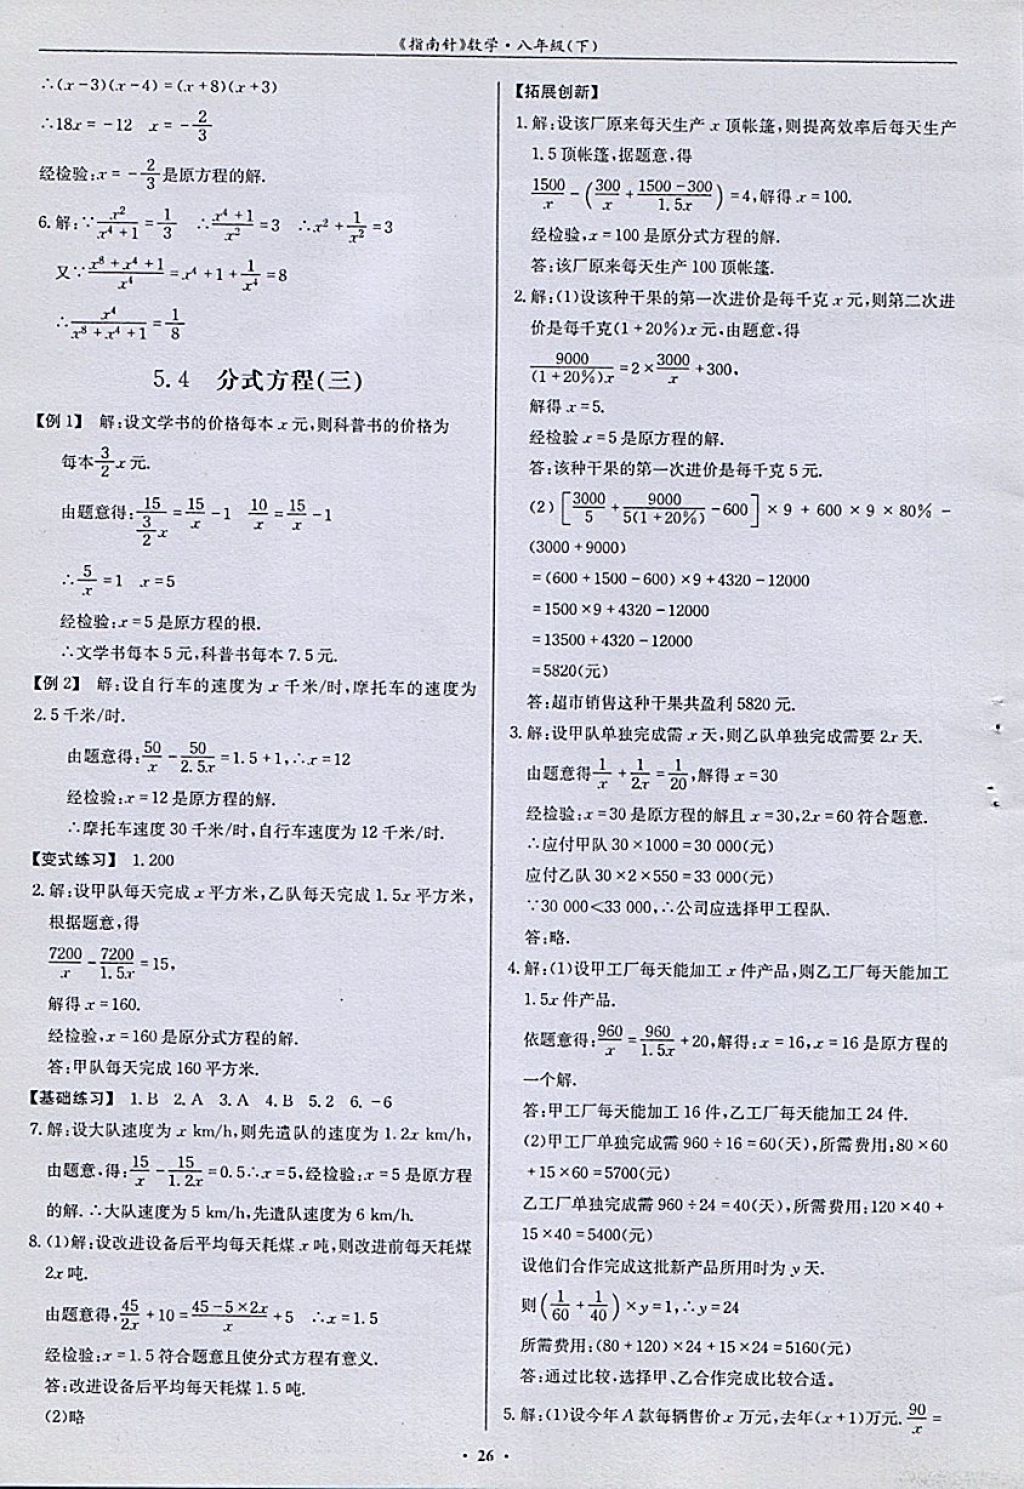 《指南针》数学·八年级(下)
∴(x-3)(x-4)=(x+8)(x+3)
∴18x=-12 x=-2/3
经检验:x=-2/3是原方程的解.
6.解:∵x²/(x⁴+1)=1/3 ∴(x⁴+1)/x²=3 ∴x²+1/x²=3
又∵(x⁸+x⁴+1)/x⁴=x⁴+1+1/x⁴=8
∴x⁴/(x⁸+x⁴+1)=1/8
5.4 分式方程(三)
【例1】 解:设文学书的价格每本x元,则科普书的价格为
每本3/2x元.
由题意得:15/(3/2x)=15/x-1 10/x=15/x-1
∴5/x=1 x=5
经检验:x=5是原方程的根.
∴文学书每本5元,科普书每本7.5元.
【例2】 解:设自行车的速度为x千米/时,摩托车的速度为
2.5千米/时.
由题意得:50/x-50/2.5x=1.5+1,∴x=12
经检验:x=12是原方程的解.
∴摩托车速度30千米/时,自行车速度为12千米/时.
【变式练习】 1.200
2.解:设甲队每天完成x平方米,乙队每天完成1.5x平方米,
根据题意,得
7200/x-7200/1.5x=15,
解得x=160.
经检验,x=160是原分式方程的解.
答:甲队每天完成160平方米.
【基础练习】 1.B 2.A 3.A 4.B 5.2 6.-6
7.解:设大队速度为x km/h,则先遣队的速度为1.2x km/h,
由题意,得:15/x-15/1.2x=0.5∴x=5,经检验:x=5是原方程
的解.∴大队速度为5 km/h,先遣队速度为6 km/h.
8.(1)解:设改进设备后平均每天耗煤x吨,则改进前每天耗煤
2x吨.
由题意得,45/2x+10=(45-5×2x)/x+5 ∴x=1.5
经检验:x=1.5符合题意且使分式方程有意义.
答:改进设备后平均每天耗煤1.5吨.
(2)略
【拓展创新】
1.解:设该厂原来每天生产x顶帐篷,则提高效率后每天生产
1.5顶帐篷,据题意,得
1500/x-(300/x+(1500-300)/1.5x)=4,解得x=100.
经检验,x=100是原分式方程的解.
答:该厂原来每天生产100顶帐篷.
2.解:(1)设该种干果的第一次进价是每千克x元,则第二次进
价是每千克(1+20%)x元.由题意,得
9000/(1+20%)x=2×3000/x+300.
解得x=5.
经检验x=5是原方程的解.
答:该种干果的第一次进价是每千克5元.
(2)[3000/5+9000/5(1+20%)-600]×9+600×9×80%-
(3000+9000)
=(600+1500-600)×9+4320-12000
=1500×9+4320-12000
=13500+4320-12000
=5820(元)
答:超市销售这种干果共盈利5820元.
3.解:设甲队单独完成需x天,则乙队单独完成需要2x天.
由题意得1/x+1/2x=1/20,解得x=30
经检验:x=30是原方程的解且x=30,2x=60符合题意.
∴应付甲队30×1000=30 000(元)
应付乙队30×2×550=33 000(元)
∵30 000<33 000,∴公司应选择甲工程队.
答:略.
4.解:(1)设甲工厂每天能加工x件产品,则乙工厂每天能加工
1.5x件产品.
依题意得:960/x=960/1.5x+20,解得:x=16,x=16是原方程的
一个解.
答:甲工厂每天能加工16件,乙工厂每天能加工24件.
(2)甲工厂单独完成需960÷16=60(天),所需费用:80×60
+15×60=5700(元)
乙工厂单独完成需960÷24=40(天),所需费用:120×40+
15×40=5400(元)
设他们合作完成这批新产品所用时为y天.
则(1/60+1/40)×y=1,∴y=24
所需费用:(80+120)×24+15×24=5160(元)
答:通过比较,选择甲、乙合作完成比较合适。
5.解:(1)设今年A款每辆售价x万元,去年(x+1)万元.90/x=
·26·